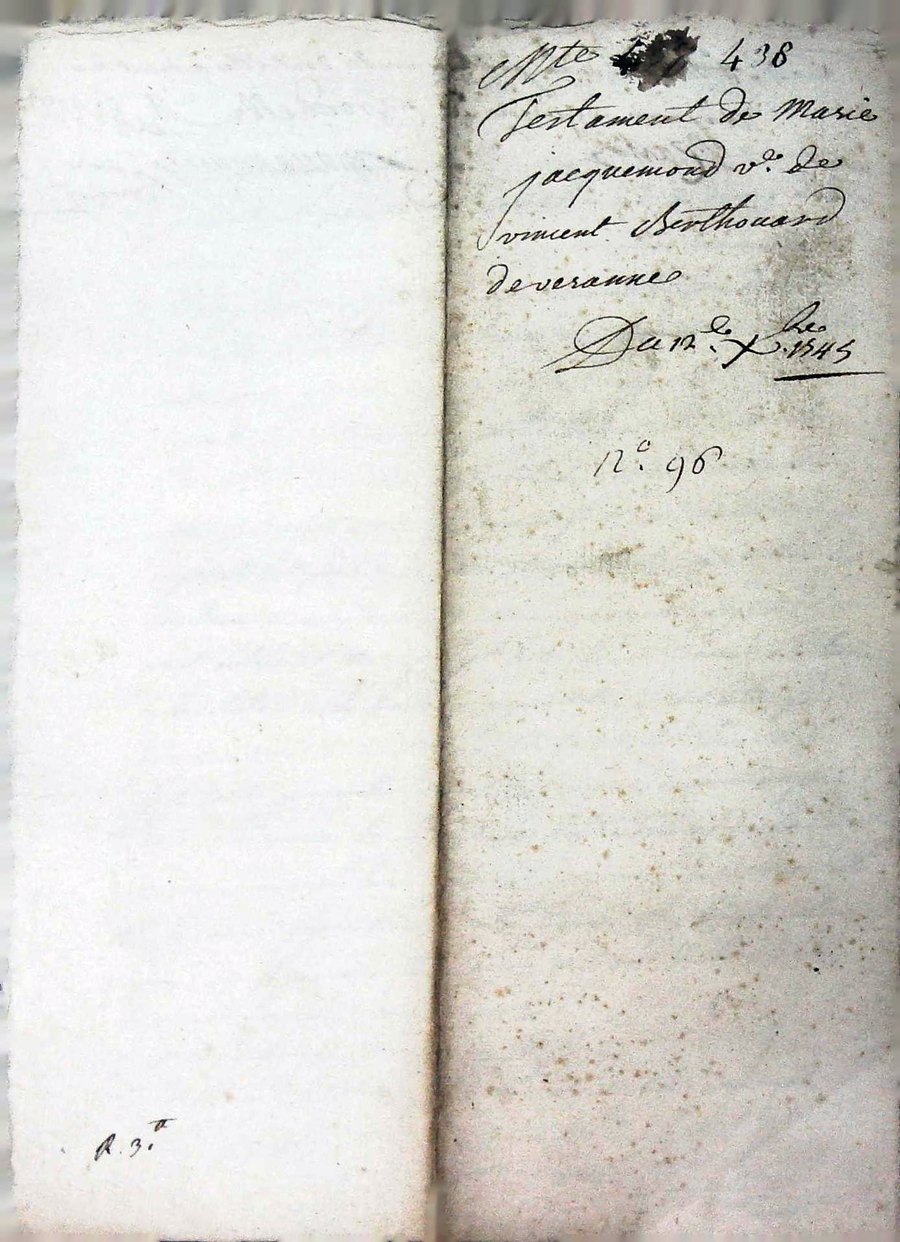 Mte 438
Testament de Marie
jacquemond ve. de
vincent Berthouard
de veranne
Du 12.e Xbre 1545
n.o 96
R. 3.a